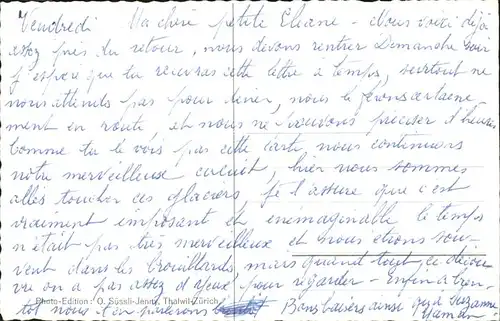 Vendredi Ma chère petite Eliane - Nous voici déjà
assez près du retour, nous devons rentrer Demanche soir
j'espère que tu recevras cette lettre à temps, surtout ne
nous attends pas pour diner, nous le ferons certaine
ment en route, et nous ne pouvons préciser d'heures
Comme tu le vois par cette carte, nous continuons
notre merveilleuse circuit, hier nous sommes
allés toucher ces glaciers, je t'assure que c'est
vraiment imposant et enémaginable le temps
n'était pas très merveilleuse et nous étions sou-
vent dans les brouillards, mais quand tout ce décou
vre on a pas assez d'yeux pour regarder - Enfin à bien-
Photo-Edition : O. Süssli-Jenny, Thalwil-Zürich
tôt nous t'en parlerons Bons baisers ainsi qu'a Suzanne
Maman